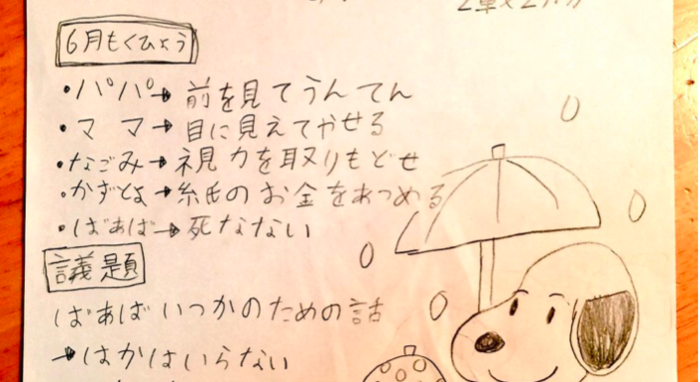 6月もくひょう
・パパ→前を見てうんてん
・ママ→目に見えてやせる
・なごみ→視力を取りもどせ
・かずとよ→糸氏のお金をあつめる
・ばぁば→死なない
議題
ばぁばいつかのための話
→はかはいらない